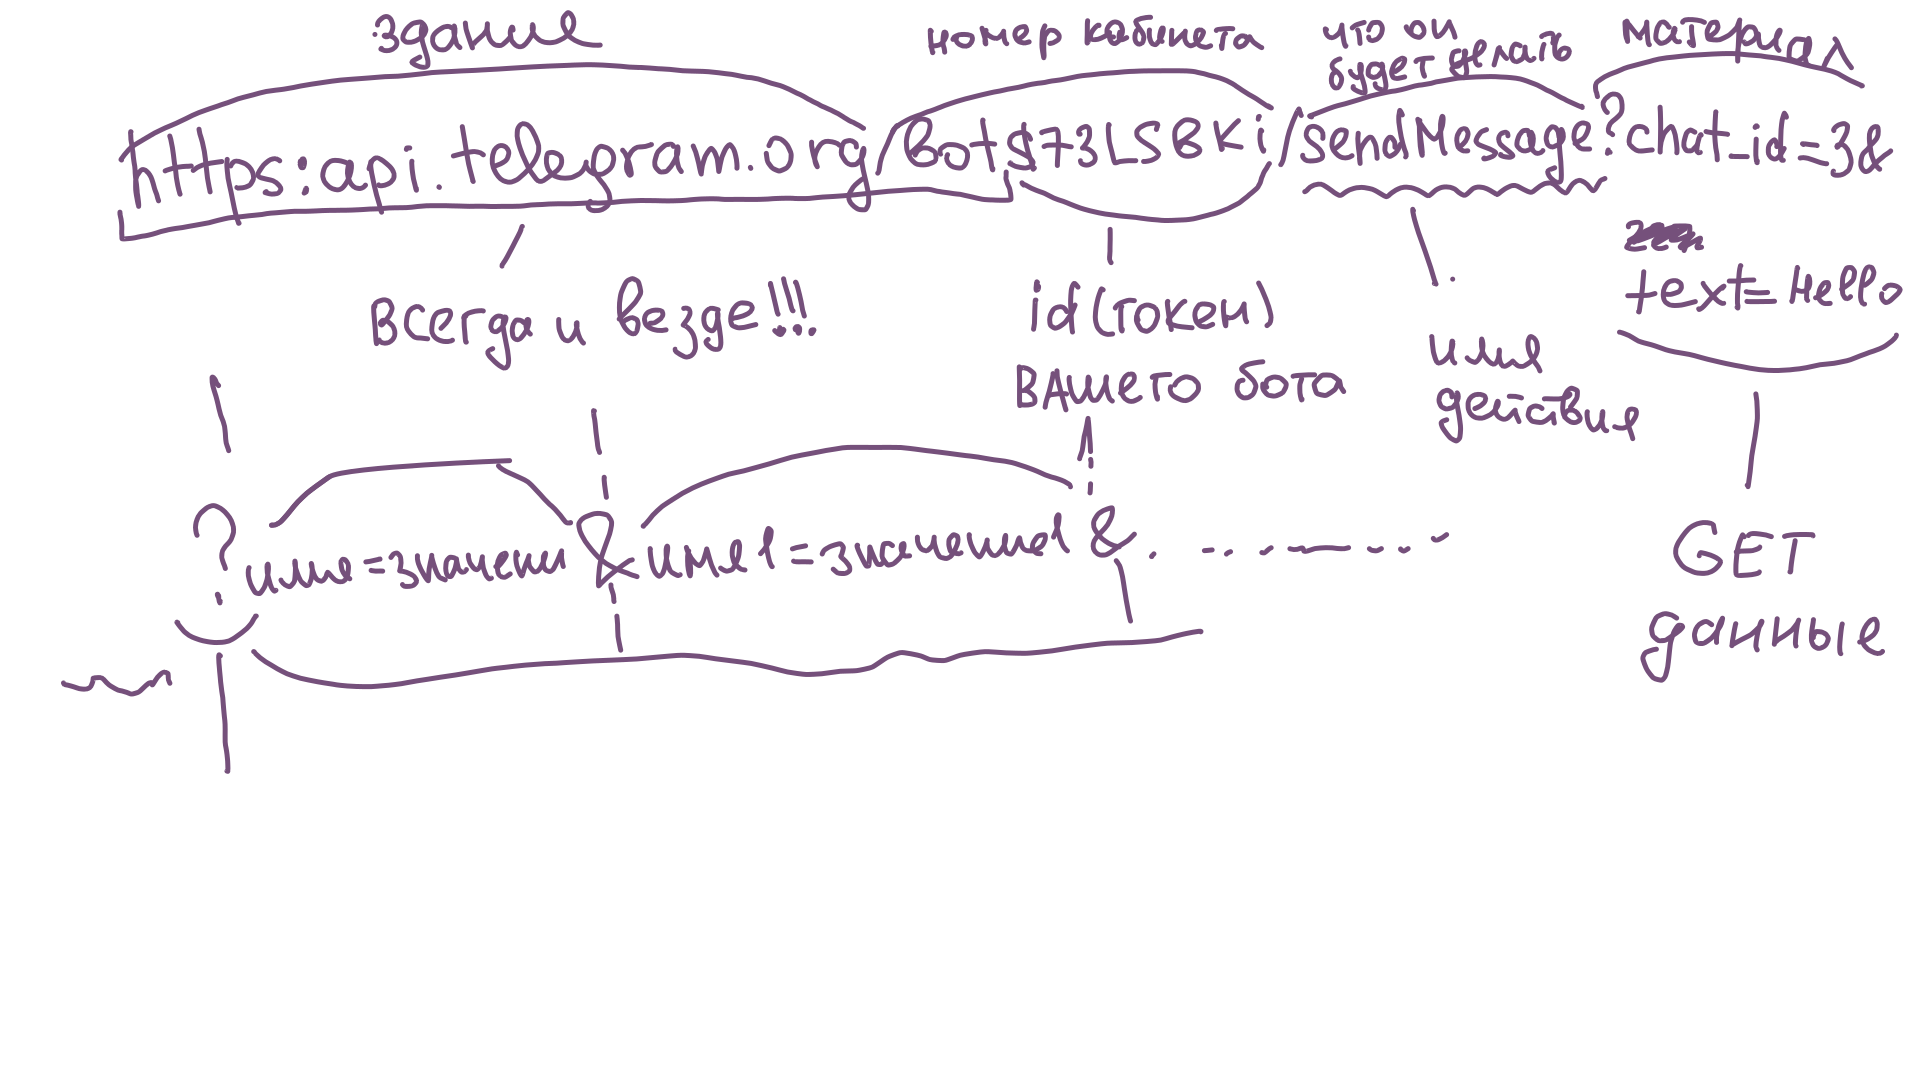 здание
номер кабинета
что он
будет делать
материал
https:api.telegram.org/bot$73LSBKi/sendMessage?chat_id=3&
text=Hello
Всегда и везде!!!
id(токен)
ВАшего бота
имя
действия
?имя=значени&имя1=значение1&. ........
GET
данные